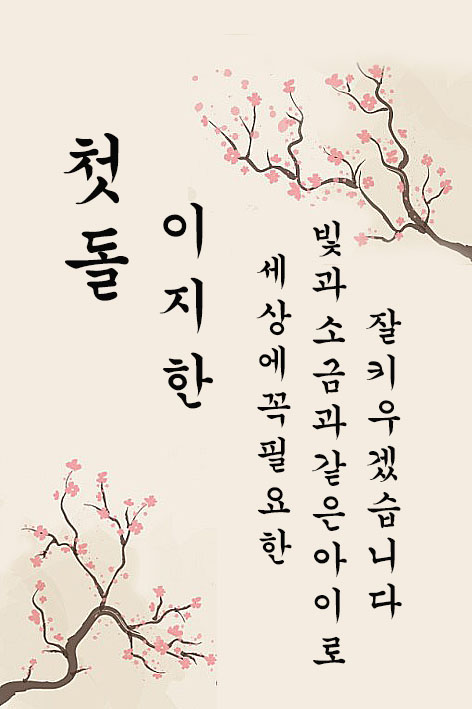 첫돌
이지한
세상에꼭필요한
빛과소금과같은아이로
잘키우겠습니다